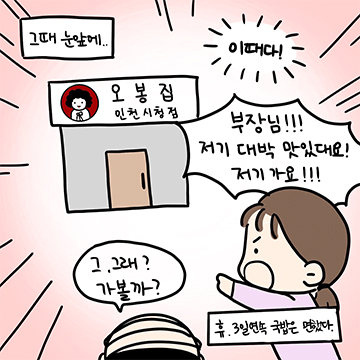 그때 눈앞에..
이때다!
오봉집
인천시청점
부장님!!!
저기 대박 맛있대요!
저기 가요!!!
그, 그래?
가볼까?
휴, 3일연속 국밥은 면했다.